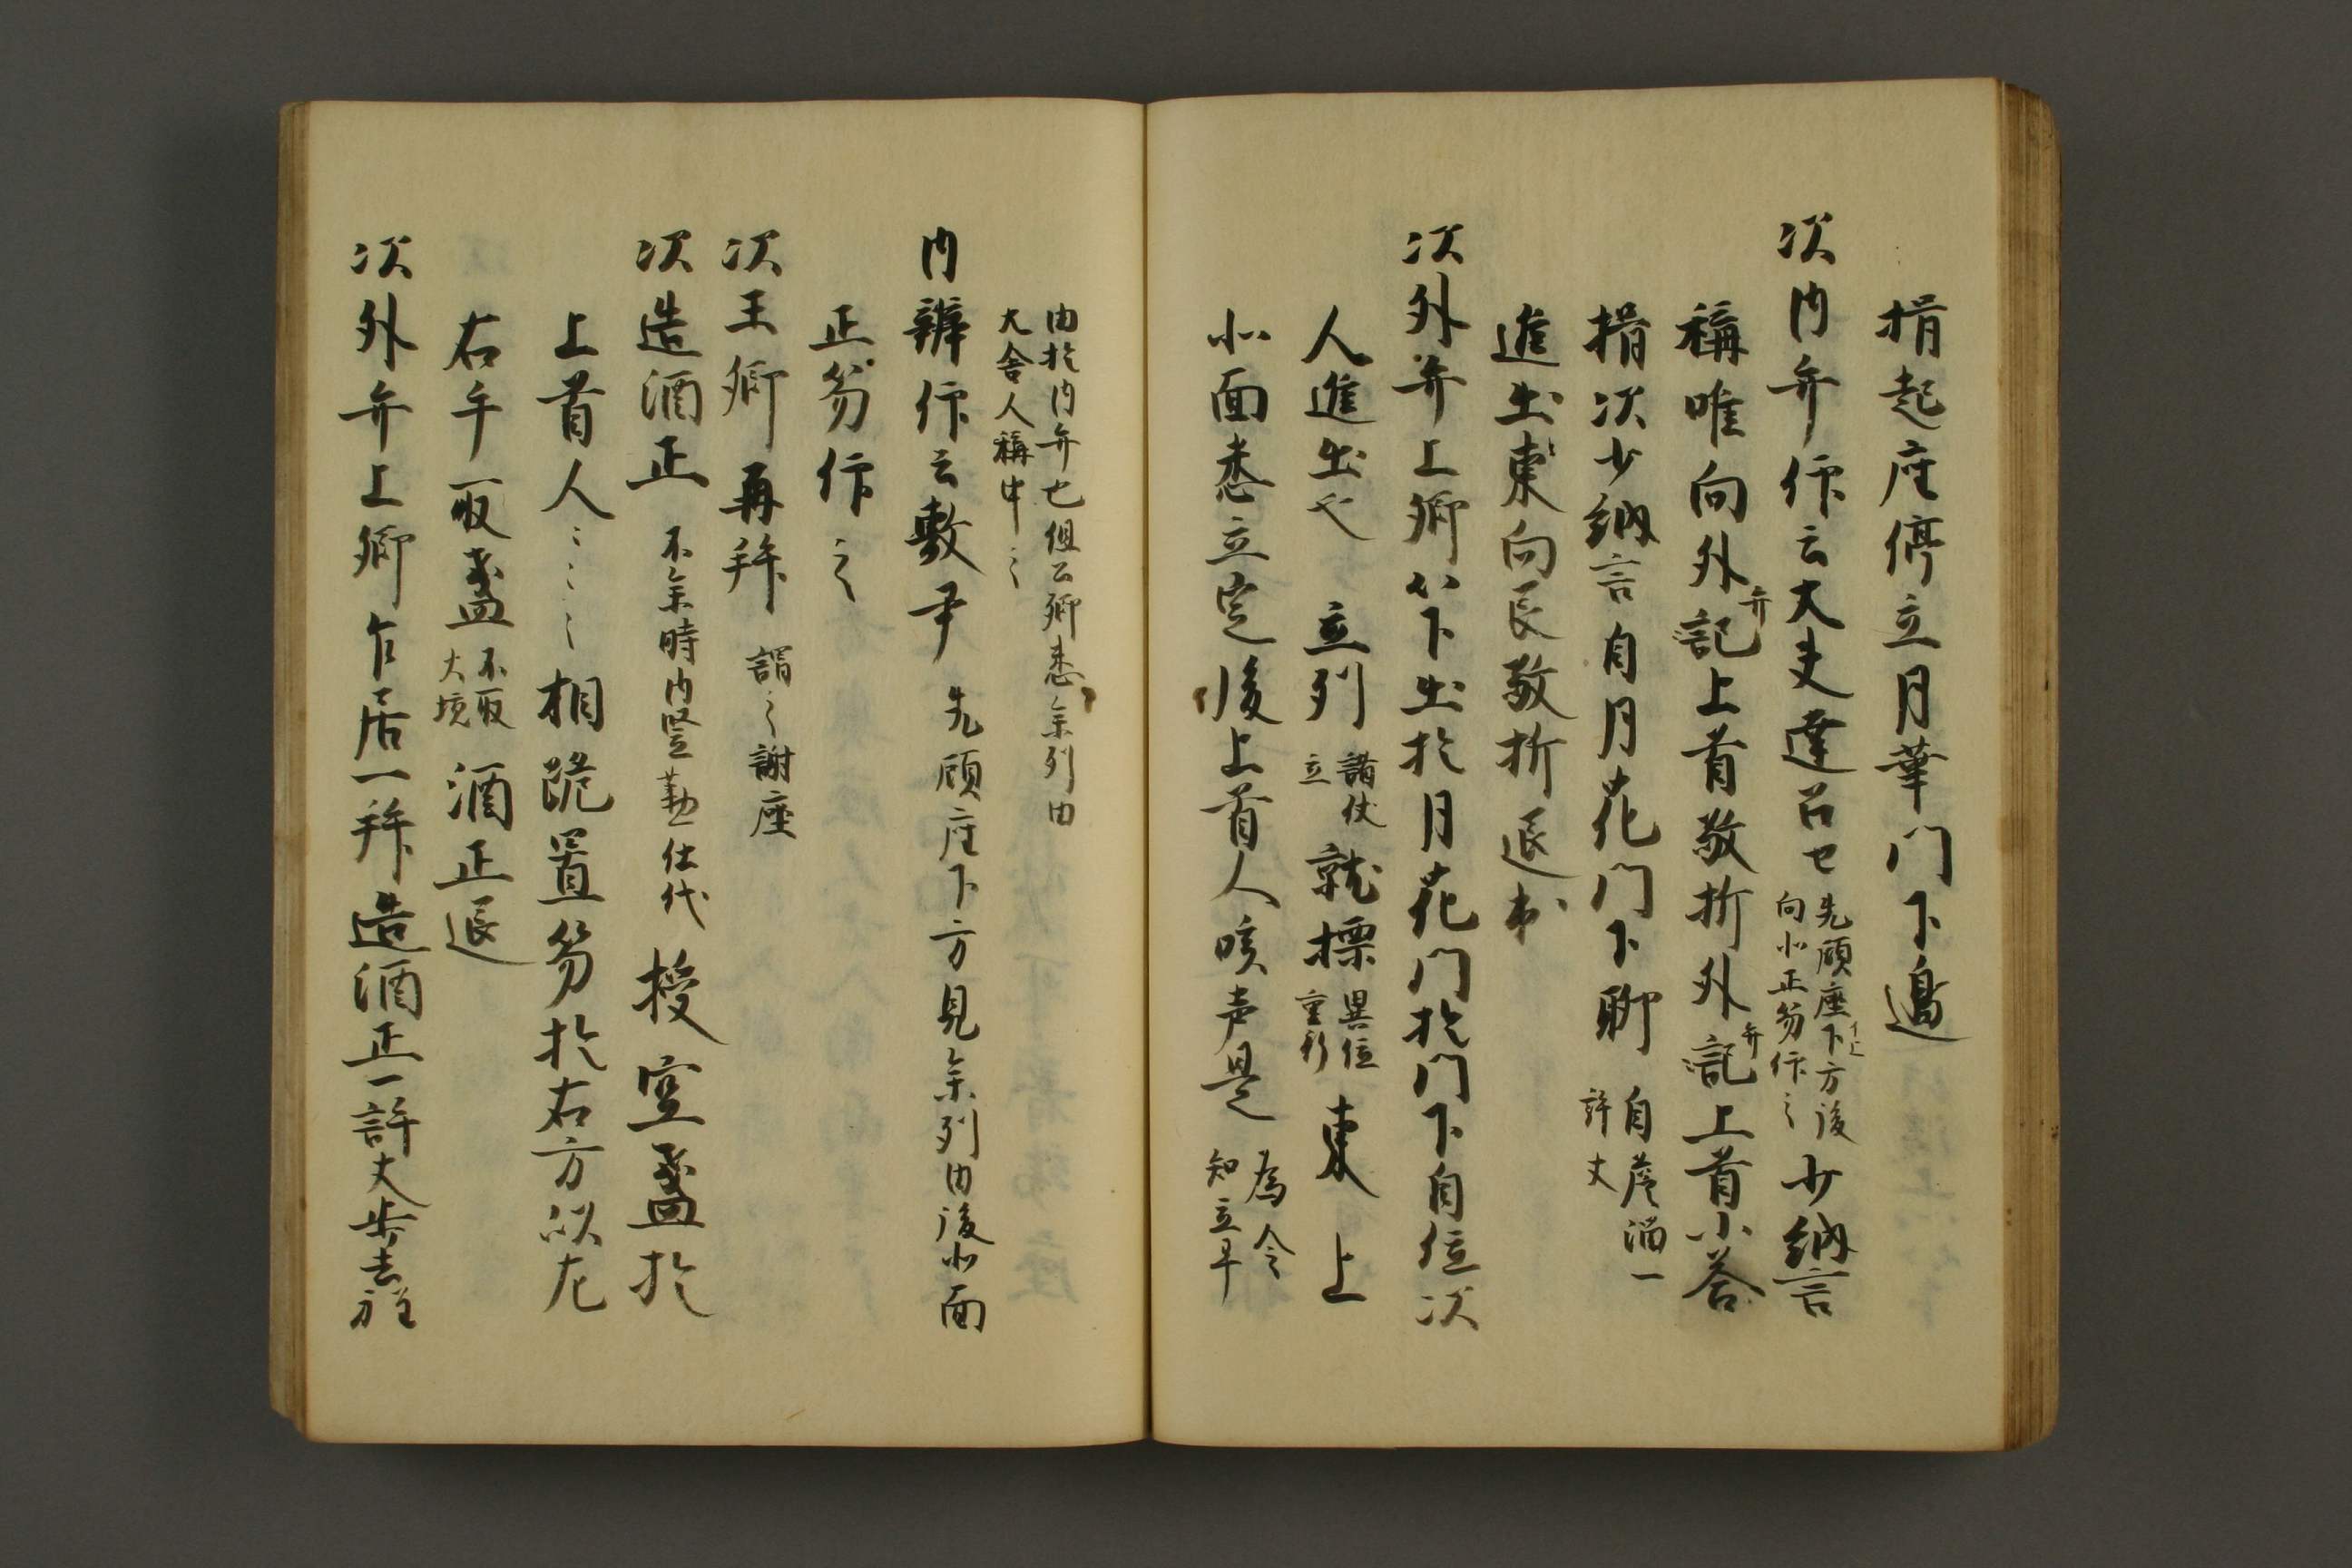 揖起座停立月華门下邊
次内弁仰云大夫達召せ先顧座下方後
向北正笏仰之少納言
稱唯向外記上首敬折外記上首小荅
弁
弁
揖次少納言自月花门下聊自簷溜一
許丈
進出東向長敬折退出
次外弁上卿以下出於月花门於门下自位次
人進出也立列諸仗
立就標異位
重行東上
北面悉立定後上首人咳声是為令
知立早
由於内弁也但公卿悉参列由
大舎人稱申之
内辨仰云敷尹先顧座下方見参列由後北面
正笏仰之
次王卿再拜謂之謝座
次造酒正不参時内竪勤仕代授空盞於
上首人〻〻〻相跪置笏於右方以左
右手取盞不取
大境酒正退
次外弁上卿乍居一拜造酒正一許丈歩去程